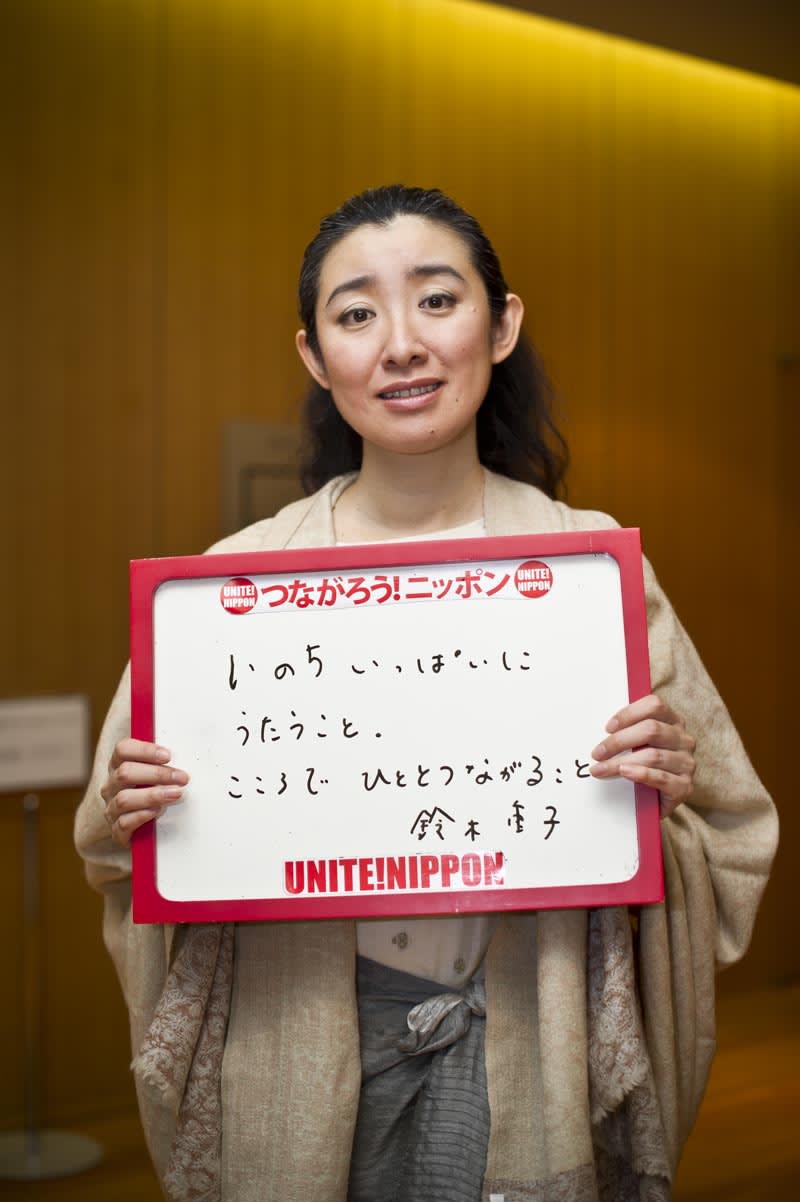 UNITE! NIPPON つながろう!ニッポン UNITE! NIPPON
いのち いっぱいに
うたうこと。
こころで ひととつながること
鈴木重子
UNITE!NIPPON